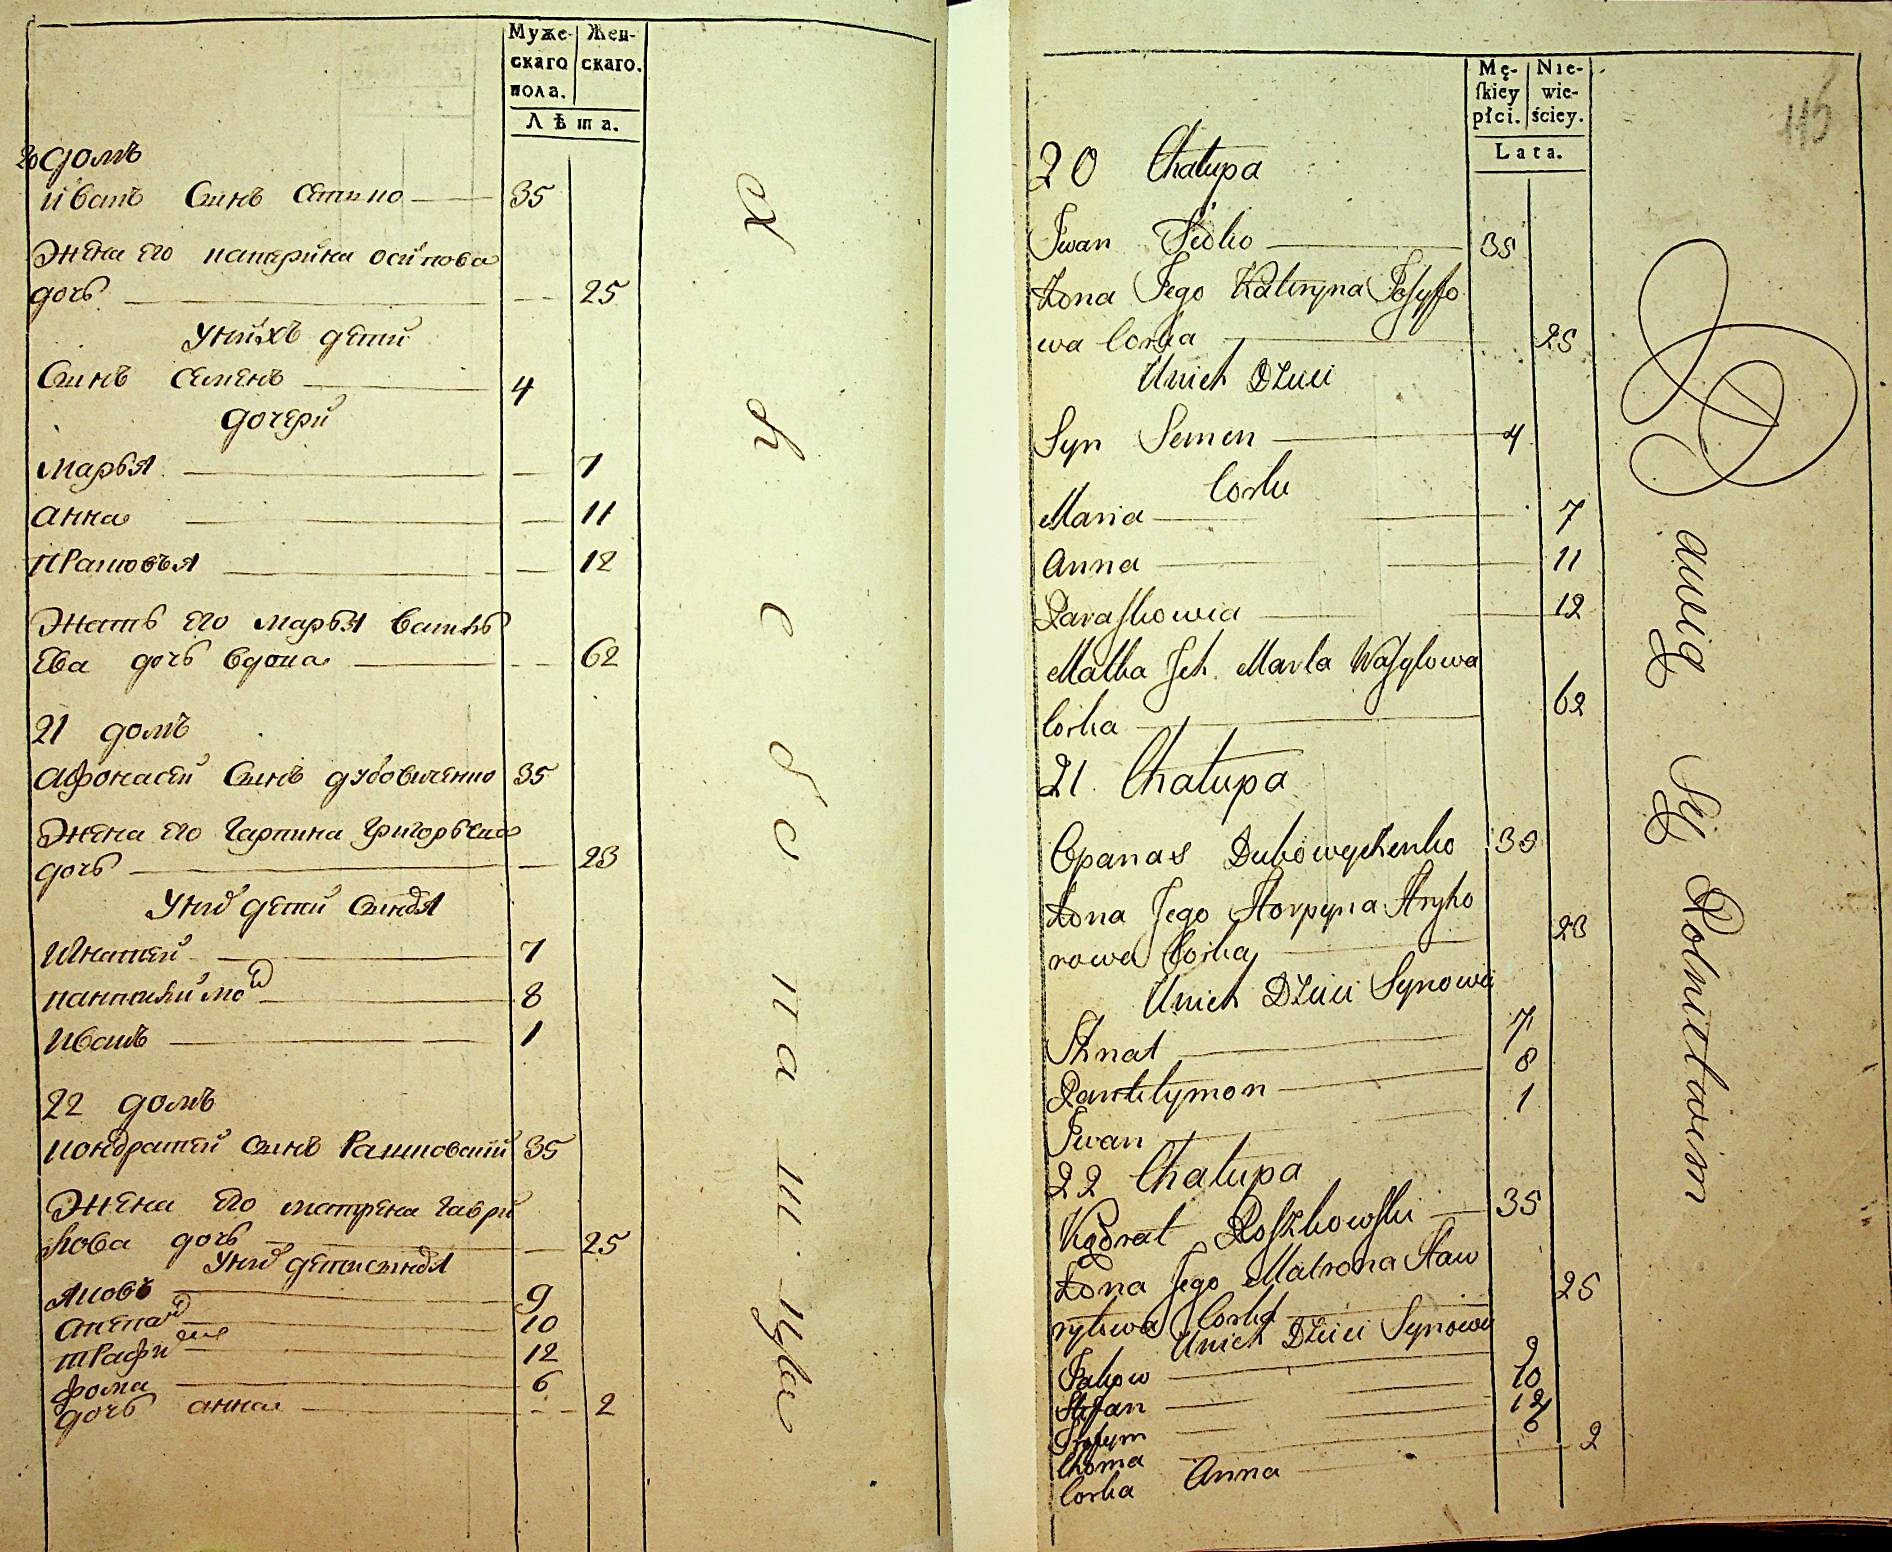 Муже-
скаго
пола.
Жен-
скаго.
Лѣта.
20 домъ
иванъ Синъ 35
Жена его катерина осипова
дочь 25
Унихъ дети
Синъ семенъ 4
дочери
Марья 7
анна 11
12
Мать его марья василь
ева дочь вдова 62
21 домъ
афонасей Синъ дубовиченко 35
Жена его Гарпина Григорьева
дочь 23
Уних дети синовя
Игнатей 7
8
Иванъ 1
22 домъ
кондратей синъ Рашковский 35
Жена его матрена гаври
лова дочь 25
Уних дети синовя
Яковъ 9
степан 10
12
фома 6
дочь анна 2
Mę-
skiey
płci.
Nie-
wie-
ściey.
Lata.
115
20 Chałupa
Iwan 35
Żona Jego Kateryna Josyfo
wa Corka 25
Unich Dzieci
Syn Semen 4
Corki
Maria 7
Anna 11
Paraskowia 12
Matka Jch Marta Wasylowa
Corka 62
21 Chałupa
Opanas Dubowyczenko 35
Żona Jego Horpyna Hryho
rowa Corka 23
Unich Dzieci Synowie
Ihnat 7
Pantelymon 8
Iwan 1
22 Chałupa
Kądrat Roszkowski 35
Żona Jego Matrona Haw
ryłowa Corka 25
Unich Dzieci Synowie
Jakow 9
Stefan 10
12
Choma 6
Corka Anna 2
Bawią Się Rolnictwim